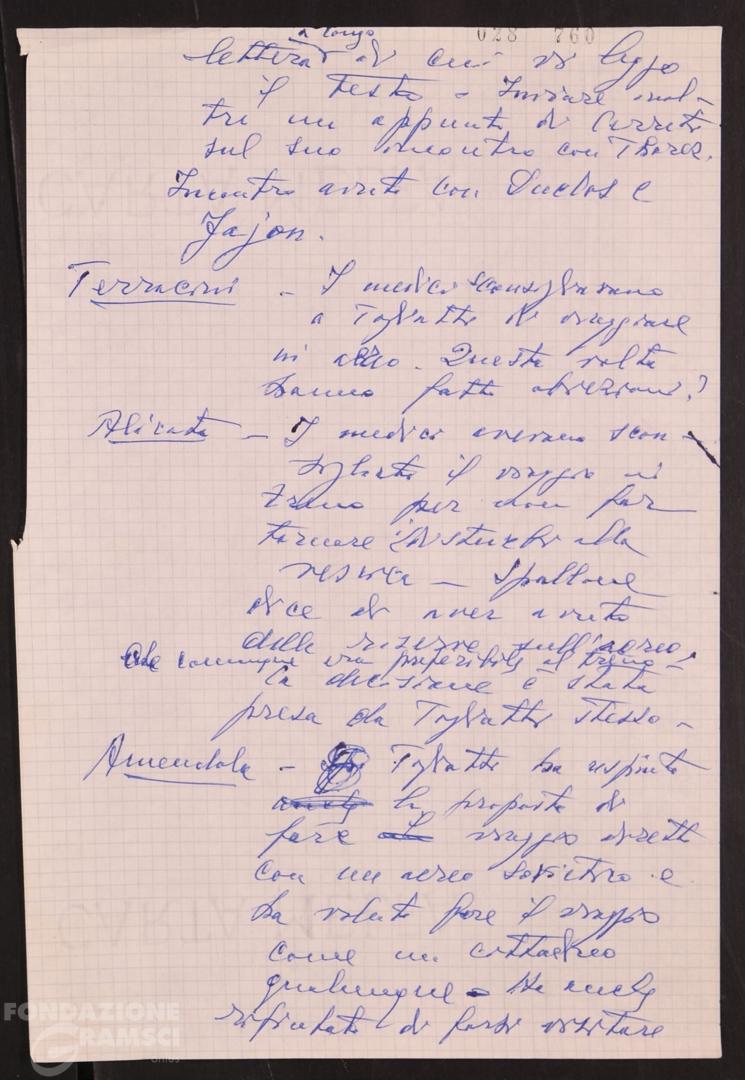 028 760
a Longo
lettera di cui si legge
il testo - Inviare inol-
tre un appunto di Cerreti
sul suo incontro con Thorez.
Incontro avuto con Duclos e
Fajon.
Terracini - I medici sconsigliavano
a Togliatti di viaggiare
in aereo. Questa volta
hanno fatto obiezioni?
Alicata - I medici avevano scon-
sigliato il viaggio in
treno per non far
tornare i disturbi alla
vescica - Spallone
dice di aver avuto
delle riserve sull'aereo,
che comunque era preferibile al treno -
la decisione è stata
presa da Togliatti stesso -
Amendola - Togliatti ha respinto
la proposta di
fare viaggio diretto
con un aereo sovietico e
ha voluto fare il viaggio
come un cittadino
qualunque - Ha anche
rifiutato di farsi visitare
FONDAZIONE
GRAMSCI
onlus